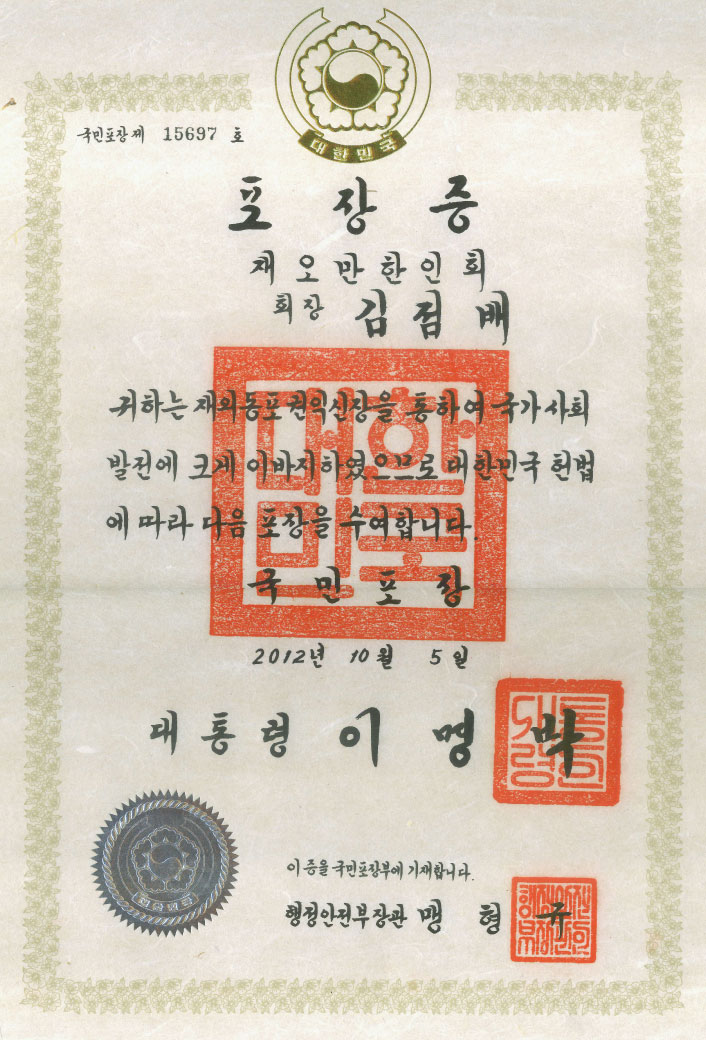 대한민국
국민포장제 15697 호
포장증
재오만한인회
회장 김점배
귀하는 재외동포권익신장을 통하여 국가사회
발전에 크게 이바지하였으므로 대한민국 헌법
에 따라 다음 포장을 수여합니다.
대한
민국
국민포장
2012년 10월 5일
대통령 이명박
대통
령인
이 증을 국민포장부에 기재합니다.
행정안전부장관 맹형규